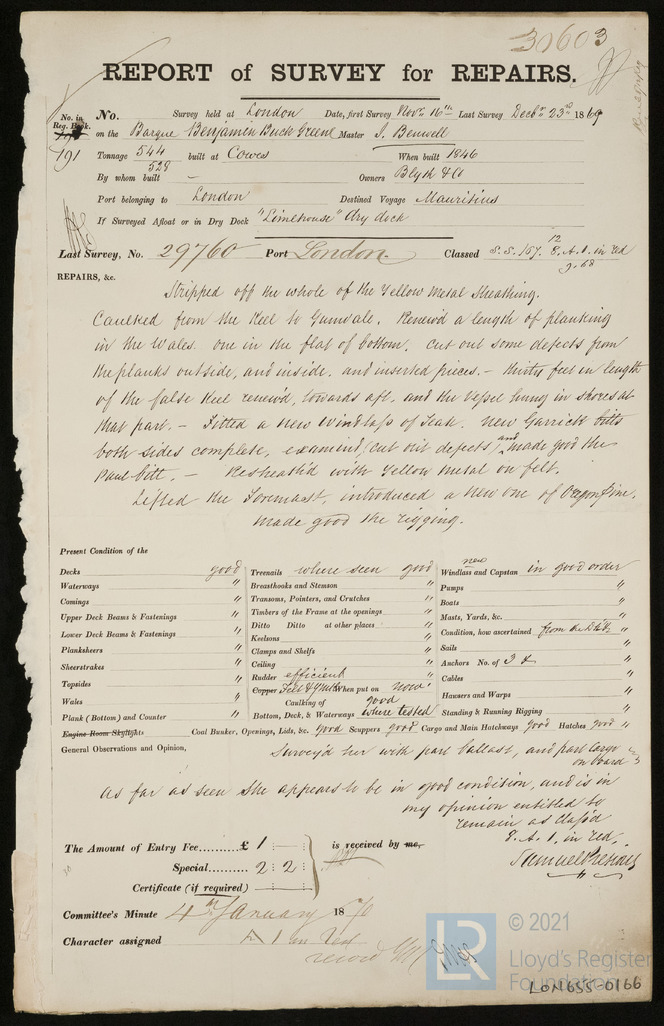 30603
REPORT of SURVEY for REPAIRS.
No. in Reg. Book. 191
No. Survey held at London Date, first Survey Novr 16th Last Survey Decbr 23rd 1869
on the Barque Benjamin Buck Greene Master J. Benwell
Tonnage 544 built at Cowes When built 1846
529
By whom built - Owners Blyth & Co
Port belonging to London Destined Voyage Mauritius
If Surveyed Afloat or in Dry Dock "Limehouse" dry dock
Last Survey, No. 29760 Port London. Classed S.S. 157. 12 E.A.1. in red
9.68
REPAIRS, &c.
Stripped off the whole of the Yellow Metal Sheathing.
Caulked from the Keel to Gunwale. Renew'd a length of planking
in the Wales. one in the flat of bottom. cut out some defects from
the planks outside, and inside. and inserted pieces. - thirty feet in length
of the false Keel renew'd, towards aft. and the vessel hung in shores at
that part. - Fitted a new windlass of Teak. new Garrick bitts
both sides complete, examin'd, (cut out defects) and made good the
Paul bitt. - Resheath'd with Yellow Metal on felt.
Lifted the Foremast, introduced a new one of Oregon Pine.
Made good the rigging.
Present Condition of the
Decks good Treenails where seen good new Windlass and Capstan in good order
Waterways " Breasthooks and Stemson " Pumps "
Comings " Transoms, Pointers, and Crutches " Boats "
Upper Deck Beams & Fastenings " Timbers of the Frame at the openings " Masts, Yards, &c. "
Lower Deck Beams & Fastenings " Ditto Ditto at other places " Condition, how ascertained from the Deck "
Planksheers " Keelsons " Sails "
Sheerstrakes " Clamps and Shelfs " Anchors No. of 3 "
Topsides " Ceiling " Cables "
Wales " Rudder efficient Hawsers and Warps "
Plank (Bottom) and Counter " Copper Felt & YM When put on now Standing & Running Rigging "
Caulking of good
Bottom, Deck, & Waterways where tested
Engine Room Skylights Coal Bunker, Openings, Lids, &c. good Scuppers good Cargo and Main Hatchways good Hatches good "
General Observations and Opinion, Survey'd her with part ballast, and part cargo
on board
As far as seen she appears to be in good condition, and is in
my opinion entitled to
remain as class'd
E.A.1. in red.
The Amount of Entry Fee...... £ 1 : is received by me,
Special......... 2 : 2
Certificate (if required)
Committee's Minute 4th January 1870
Character assigned A 1 in Red
© 2021
LR
Lloyd's Register
Foundation
LON655-0166